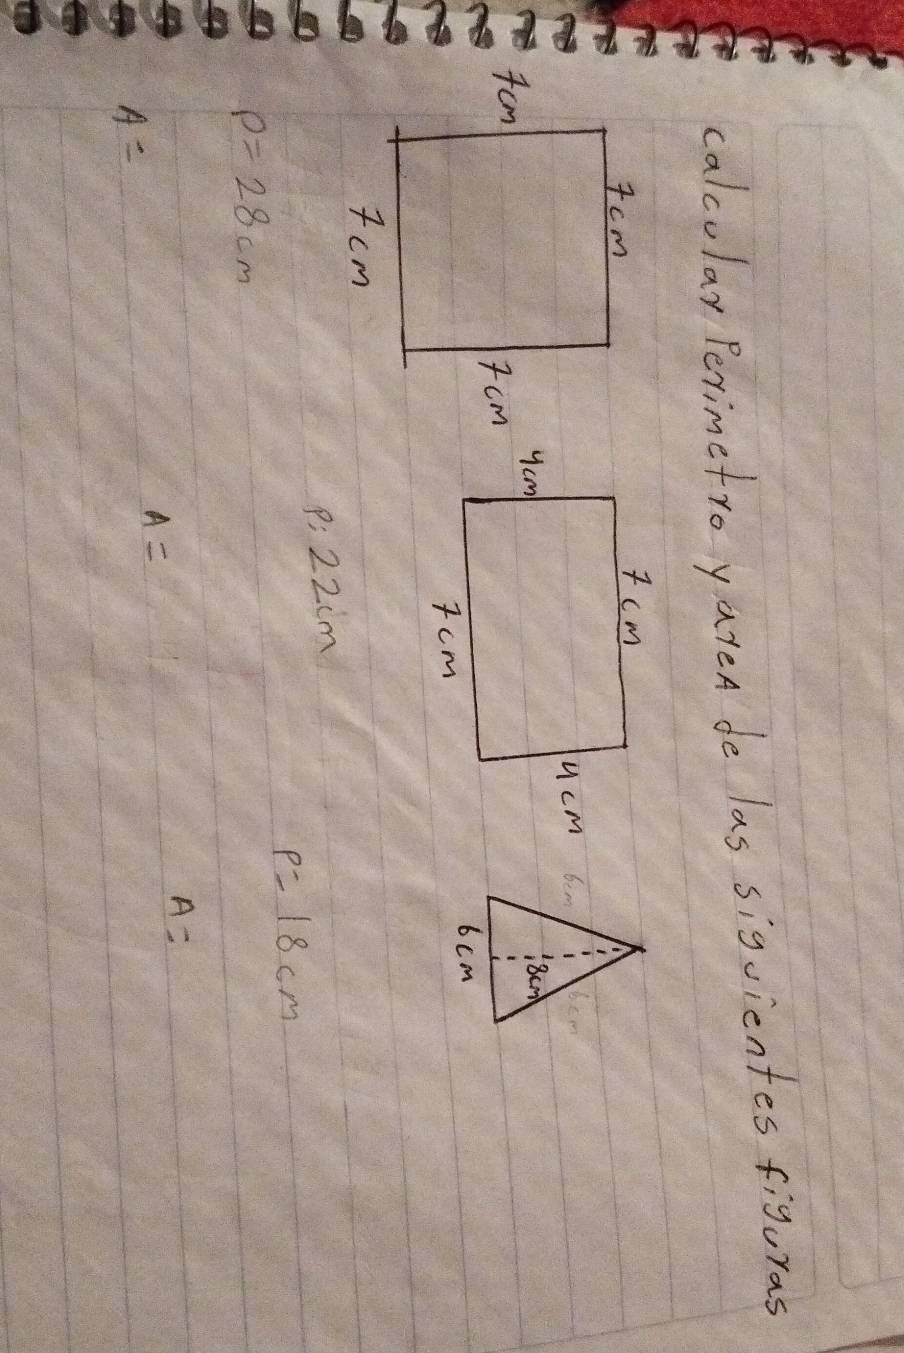 calcular Perimetro y areA de las siguientes figuras
7cm
7cm
7cm
7cm
7cm
4cm
4cm
7cm
6cm
6cm
8cm
6cm
P= 28cm
P: 22cm
P= 18cm
A=
A=
A=